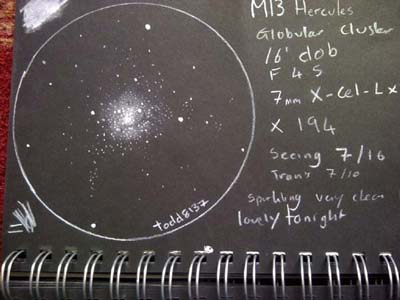 M13 Hercules
Globular Cluster
16" dob
F 4 5
7mm X-Cel-Lx
x 194
Seeing 7/10
Trans 7/10
sparkling very clear
lovely tonight
todd8137